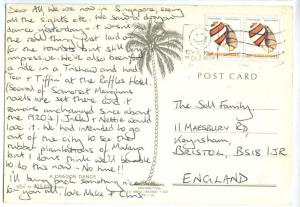 Dear All. We are now in Singapore, seeing
all the sights etc. We saw a dragon
dance yesterday - it wasn't
the real thing, just laid on
for the tourists but still very
impressive. We've also been for
a ride in a Trishaw and had
Tea + Tiffin at the Raffles Hotel.
(Several of Somerset Maughams
novels are set there and it
remains unchanged since about
the 1920's) Juliet + Nettie would
love it. We had intended to go
out of the city to see the
rubber plantations of Malaya
but I don't think we'll be able
to do this now - No time!!
I'll bring back something nice
for you all. Love Mike + Chris
A DRAGON DANCE
POST CARD
The Sell Family,
11 Maesbury RD
Keynsham,
BRISTOL, BS18 1JR
ENGLAND